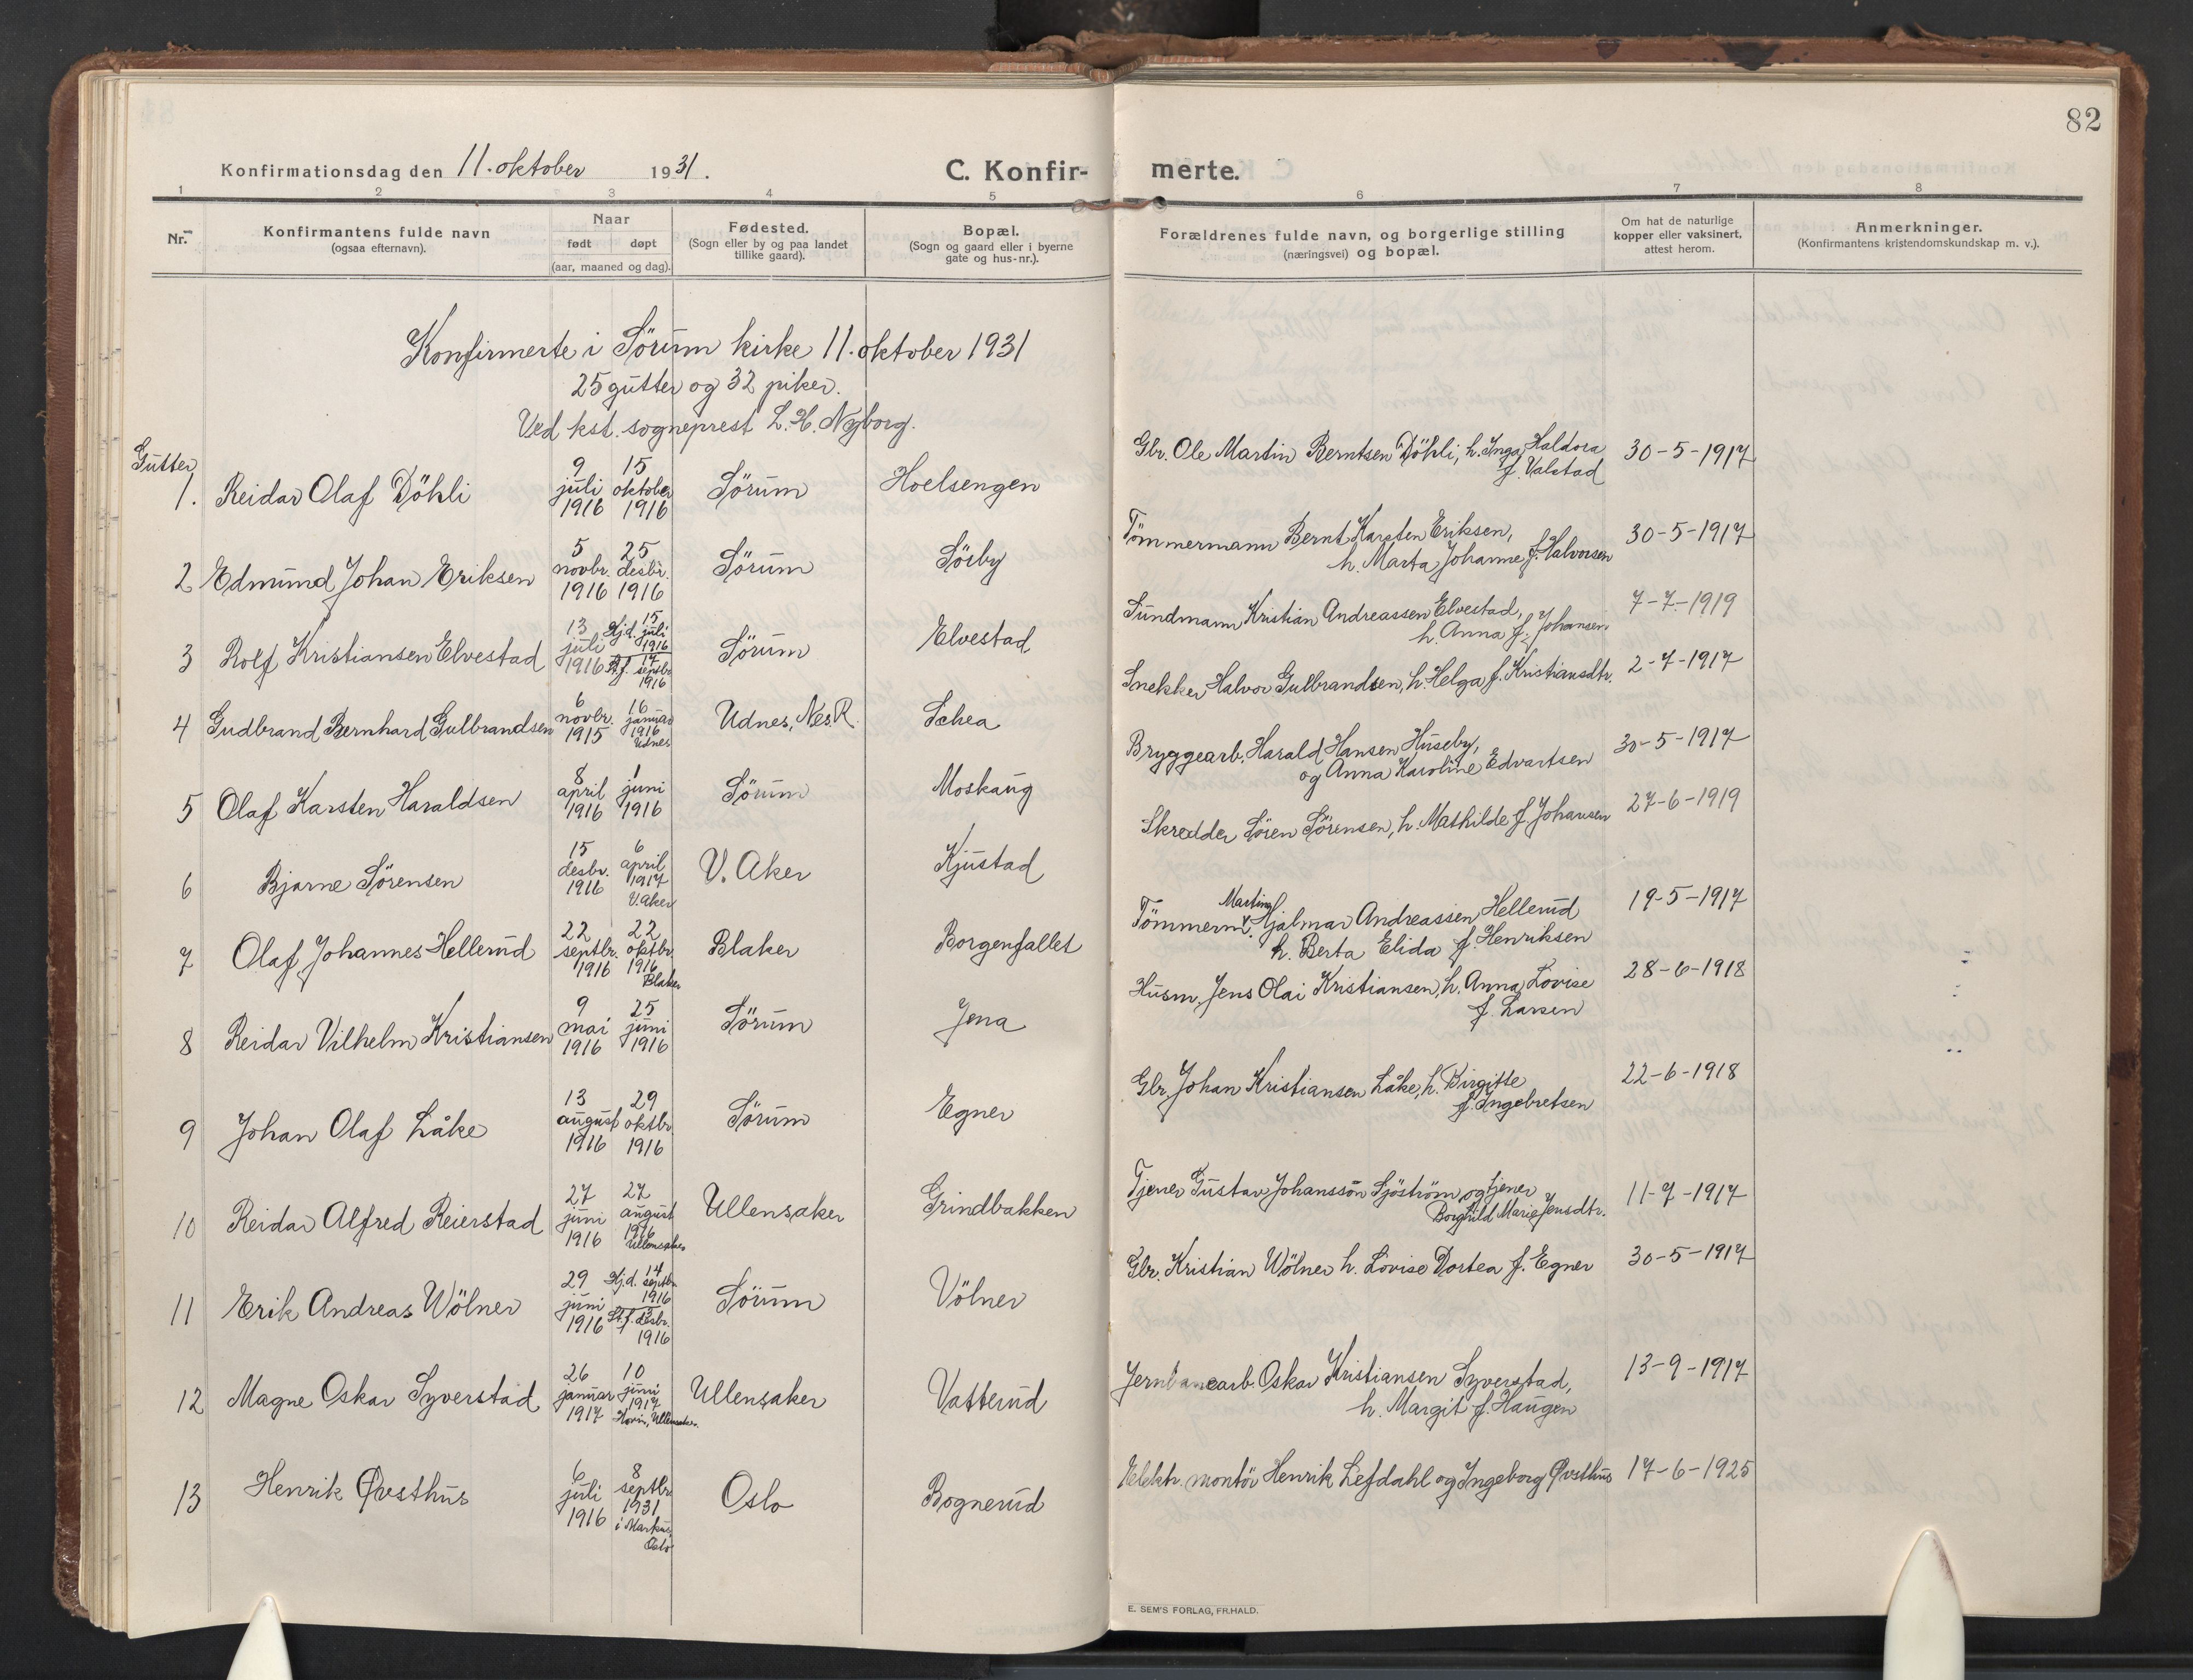 82
Konfirmationsdag den 11. oktober 1931.
C. Konfir- merte.
1 2 3 4 5 6 7 8
Nr.
Konfirmantens fulde navn
(ogsaa efternavn).
Naar
født døpt
(aar, maaned og dag).
Fødested.
(Sogn eller by og paa landet
tillike gaard).
Bopæl.
(Sogn og gaard eller i byerne
gate og hus-nr.).
Forældrenes fulde navn, og borgerlige stilling
(næringsvei) og bopæl.
Om hat de naturlige
kopper eller vaksinert,
attest herom.
Anmerkninger.
(Konfirmantens kristendomskundskap m. v.).
Konfirmerte i Sörum kirke 11. oktober 1931
25 gutter og 32 piker.
Ved kst. sogneprest L. H. Nyborg.
Gutter
1. Reidar Olaf Döhli
9 juli 1916
15 oktober 1916
Sörum
Hoelsengen
Gbr. Ole Martin Berntsen Döhli, h. Inga Haldora
f. Valstad
30-5-1917
2 Edmund Johan Eriksen
5 novbr. 1916
25 desbr. 1916
Sörum
Sörby
Tömmermann Bernt Karsten Eriksen,
h. Marta Johanne f. Halvorsen
30-5-1917
3 Rolf Kristiansen Elvestad
13 juli 1916
Hj.d. 15 juli 1916
St.f. 17 septbr. 1916
Sörum
Elvestad
Sundmann Kristian Andreassen Elvestad,
h. Anna f. Johansen.
7-7-1919
4 Gudbrand Bernhard Gulbrandsen
6 novbr. 1915
16 januar 1916
Udnes
Udnes, Nes. R.
Schea
Snekker Halvor Gulbrandsen, h. Helga f. Kristiansdtr.
2-7-1917
5 Olaf Karsten Haraldsen
8 april 1916
1 juni 1916
Sörum
Moskaug
Bryggearb. Harald Hansen Huseby,
og Anna Karoline Edvartsen
30-5-1917
6 Bjarne Sörensen
15 desbr. 1916
6 april 1917
V. Aker
V. Aker
Kjustad
Skredder Sören Sörensen, h. Mathilde f. Johansen
27-6-1919
7 Olaf Johannes Hellerud
22 septbr. 1916
22 oktbr. 1916
Blaker
Blaker
Borgenfallet
Martin
Tömmerm. Hjalmar Andreassen Hellerud
h. Berta Elida f. Henriksen
19-5-1917
8 Reidar Vilhelm Kristiansen
9 mai 1916
25 juni 1916
Sörum
Jena
Husm. Jens Olai Kristiansen, h. Anna Lovise
f. Larsen
28-6-1918
9 Johan Olaf Låke
13 august 1916
29 oktbr. 1916
Sörum
Egner
Gbr. Johan Kristiansen Låke, h. Birgitte
f. Ingebretsen
22-6-1918
10 Reidar Alfred Reierstad
27 juni 1916
27 august 1916
Ullensaker
Ullensaker
Grindbakken
Tjener Gustav Johansson Sjöström og tjener
Borghild Marie Jensdtr.
11-7-1917
11 Erik Andreas Wölner
29 juni 1916
Hj.d. 14 septbr. 1916
St.f. 3 desbr. 1916
Sörum
Völner
Gbr. Kristian Wölner h. Lovise Dortea f. Egner
30-5-1917
12 Magne Oskar Syverstad
26 januar 1917
10 juni 1917
Hovin, Ullensaker.
Ullensaker
Vatterud
Jernbanearb. Oskar Kristiansen Syverstad,
h. Margit f. Haugen
13-9-1917
13 Henrik Øvsthus
6 juli 1916
8 septbr. 1931
i Markus, Oslo
Oslo
Bognerud
Elektr. montör Henrik Lefdahl og Ingeborg Øvsthus
17-6-1925
E. SEM'S FORLAG, FR.HALD.